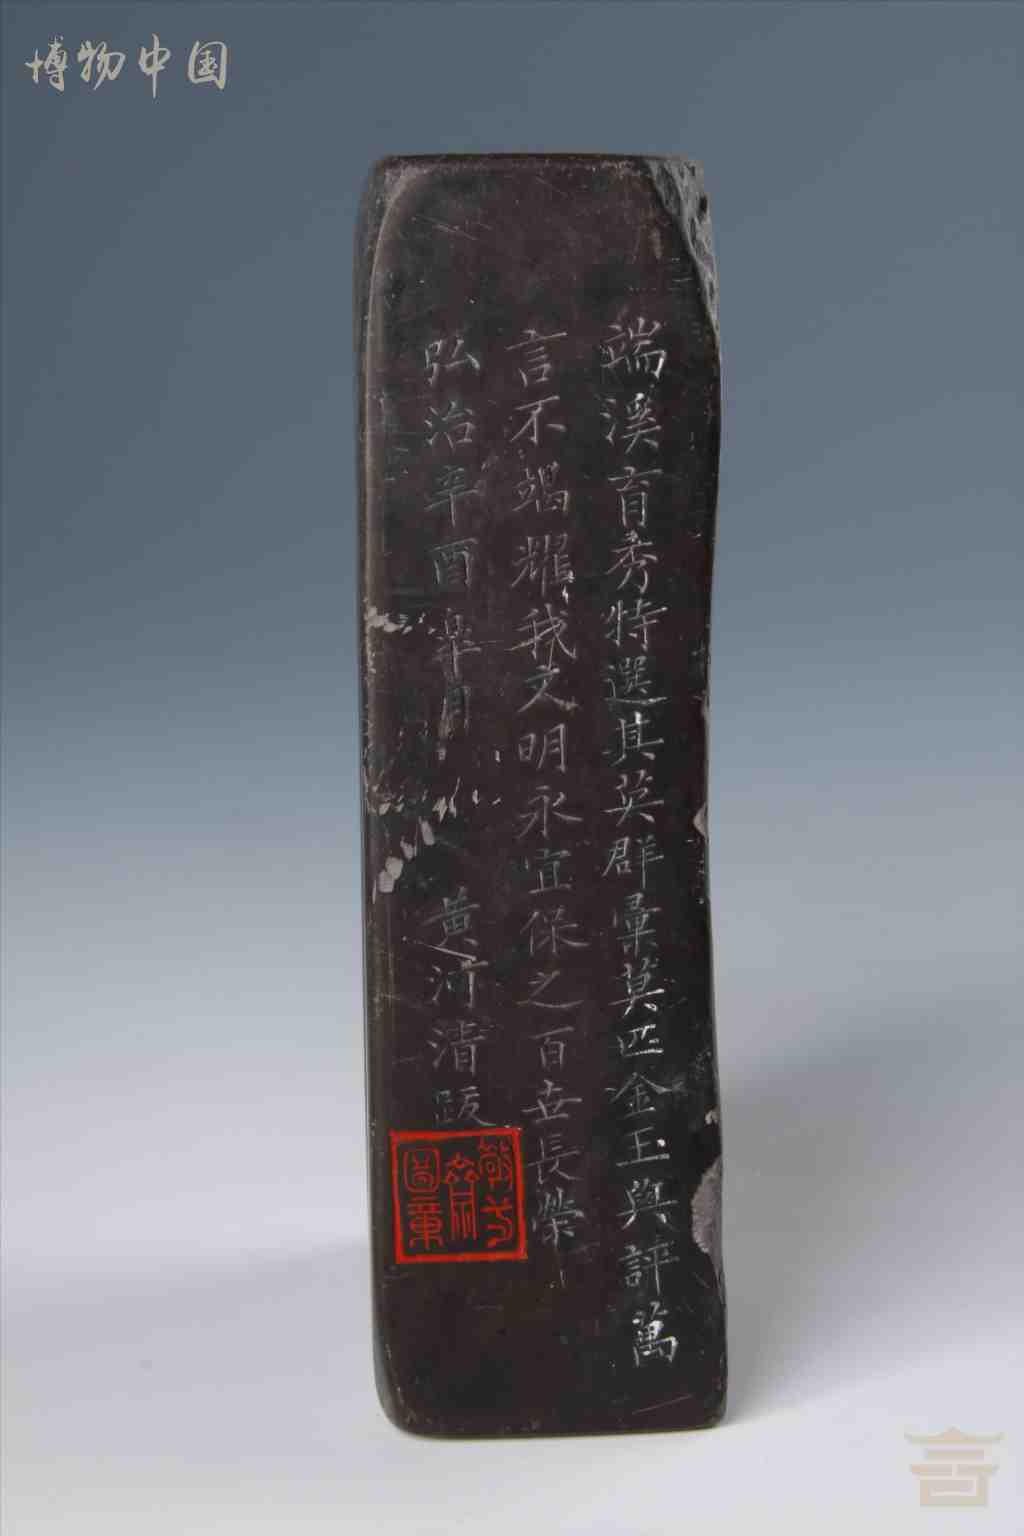 博物中国
端溪育秀特選其英群彙莫匹金玉與評萬
言不竭耀我文明永宜保之百世長榮
弘治辛酉皋月 黄河清跋
圖章